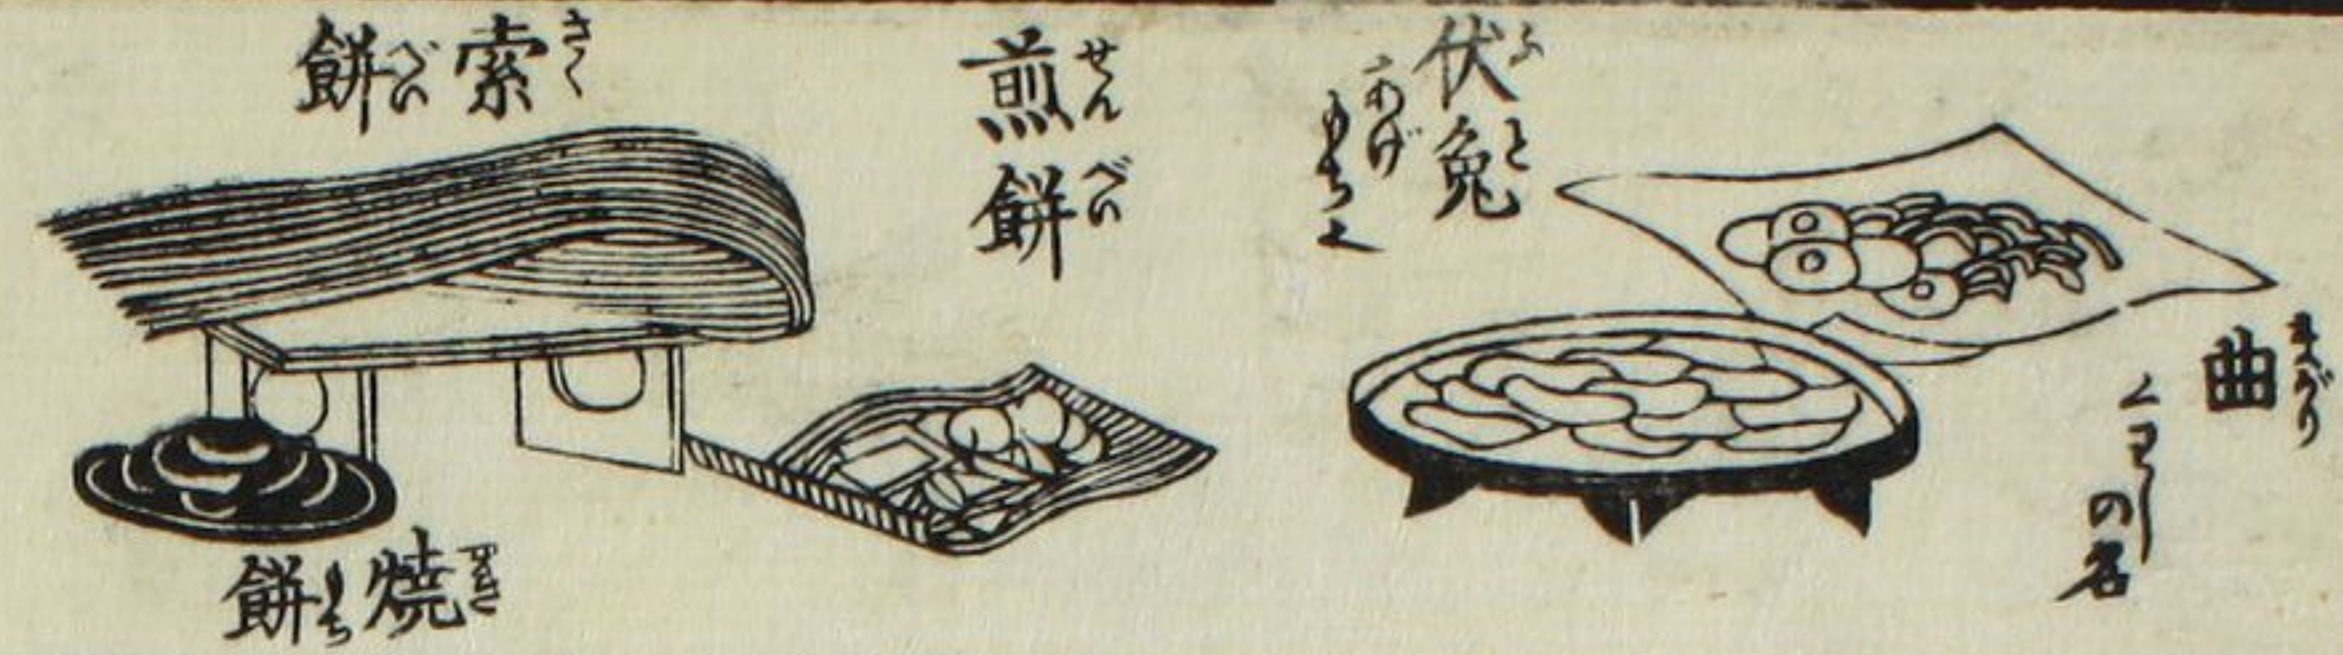 曲
まがり
くわしの名
伏兎
ふと
あげ
もち也
煎餅
せんべい
索餅
さくべい
焼餅
やきもち